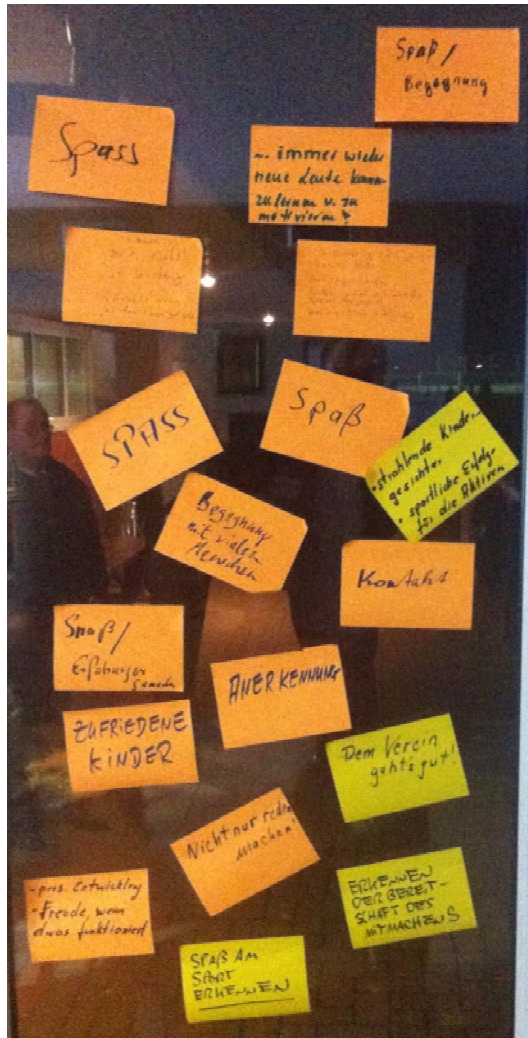 Spaß /
Begegnung
Spass
... immer wieder
neue Leute kennen
zulernen u. zu
motivieren!
SPASS
Spaß
• strahlende Kinder-
gesichter
• sportliche Erfolge
für die Aktiven
Begegnung
mit vielen
Menschen
Kontakt
Spaß /
ANERKENNUNG
ZUFRIEDENE
KINDER
Dem Verein
geht's gut!
Nicht nur reden
machen!
- pos. Entwicklung
• Freude, wenn
etwas funktioniert
ERKENNEN
DER BEREIT-
SCHAFT DES
MITMACHENS
SPAß AM
SPORT
ERKENNEN